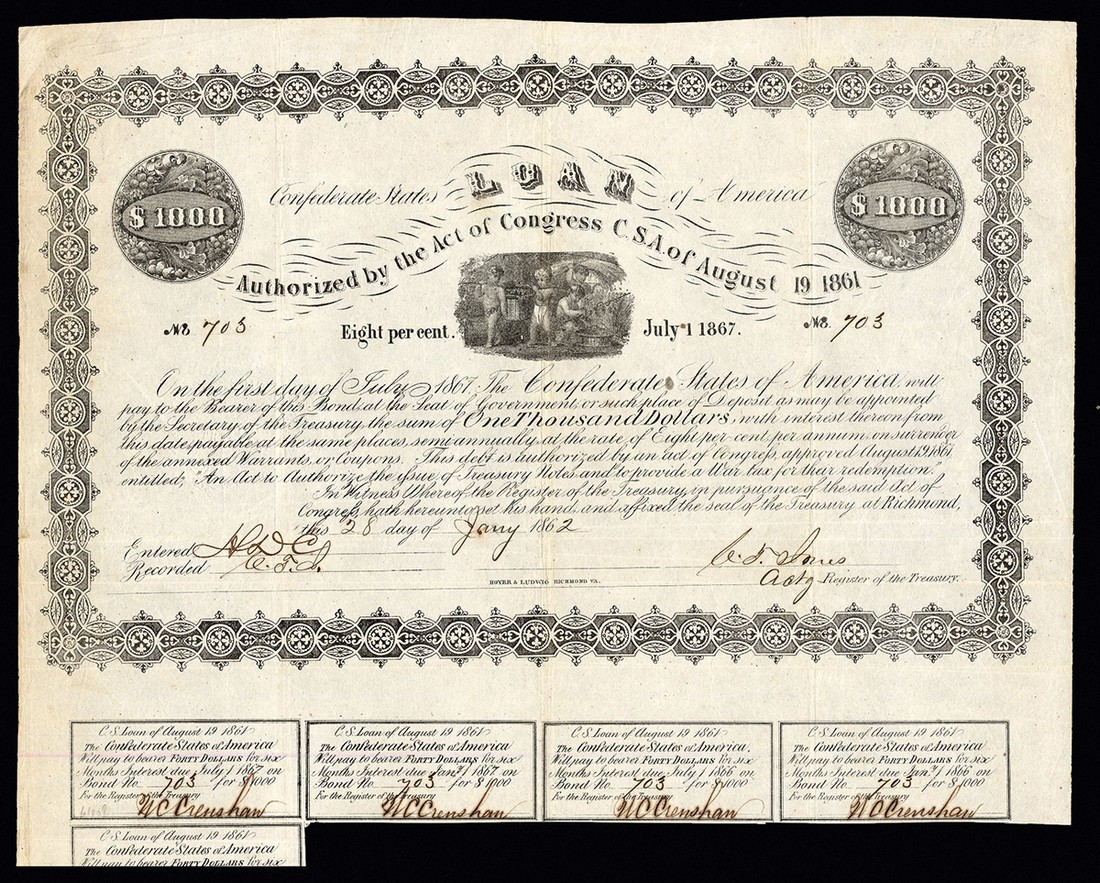 LOAN
Confederate States of America
Authorized by the Act of Congress C.S.A. of August 19 1861
$ 1000
$ 1000
No 703
Eight per cent.
July 1 1867.
No. 703
On the first day of July 1867, The Confederate States of America, will
pay to the Bearer of this Bond, at the Seat of Government, or such place of Deposit as may be appointed
by the Secretary of the Treasury, the sum of One Thousand Dollars, with interest thereon from
this date, payable at the same places, semi-annually, at the rate of Eight per cent, per annum, on surrender
of the annexed Warrants, or Coupons. This debt is authorized by an act of Congress, approved August 19, 1861,
entitled, "An Act to Authorize the issue of Treasury Notes, and to provide a War tax for their redemption."
In Witness Whereof the Register of the Treasury, in pursuance of the said Act of
Congress, hath hereunto set his hand, and affixed the seal of the Treasury, at Richmond,
this 28 day of Jany 1862
Entered
Recorded C.T.J.
HOYER & LUDWIG RICHMOND VA.
C. T. Jones
Actg Register of the Treasury.
C.S. Loan of August 19 1861
The Confederate States of America
Will pay to bearer FORTY DOLLARS for six
Months Interest due July 1 1867 on
Bond No. 703 for $1000
For the Register of the Treasury
WC Crenshaw
C.S. Loan of August 19 1861
The Confederate States of America
Will pay to bearer FORTY DOLLARS for six
Months Interest due Jany 1 1867 on
Bond No. 703 for $1000
For the Register of the Treasury
WC Crenshaw
C.S. Loan of August 19 1861
The Confederate States of America.
Will pay to bearer FORTY DOLLARS for six
Months Interest due July 1 1866 on
Bond No. 703 for $1000
For the Register of the Treasury
WC Crenshaw
C.S. Loan of August 19 1861
The Confederate States of America
Will pay to bearer FORTY DOLLARS for six
Months Interest due Jany 1 1866 on
Bond No. 703 for $1000
For the Register of the Treasury
WC Crenshaw
C.S. Loan of August 19 1861
The Confederate States of America
Will pay to bearer FORTY DOLLARS for six